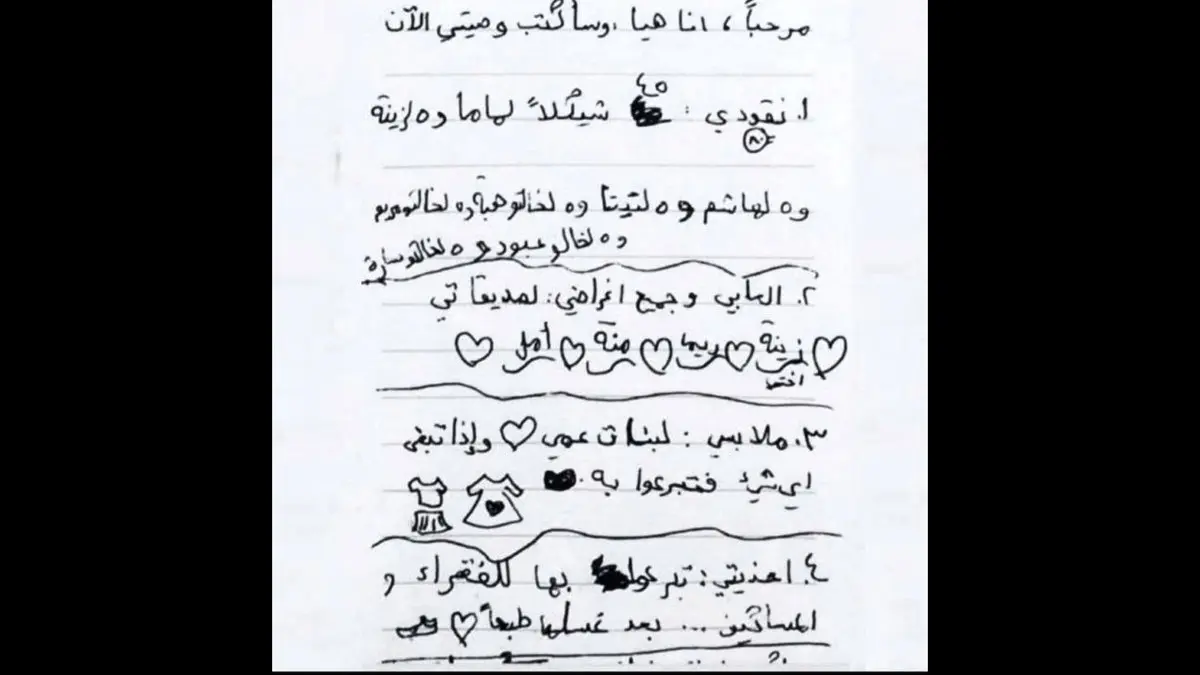 مرحباً، انا هيا، وسأكتب وصيتي الآن
٤٥
١. نقودي: شيكلاً لماما و٥ لزينة
٨٠
و٥ لهاشم و٥ لتيتا و٥ لخالتو هبة و٥ لخالتو مريم
و٥ لخالو عبود و٥ لخالتو سارة
٢. العابي وجميع اغراضي: لصديقاتي
زينة ريما منة أمل
اختي
٣. ملابسي: لبنات عمي وإذا تبقى
اي شيء فتبرعوا به.
٤. احذيتي: تبرعوا بها للفقراء و
المساكين... بعد غسلها طبعاً